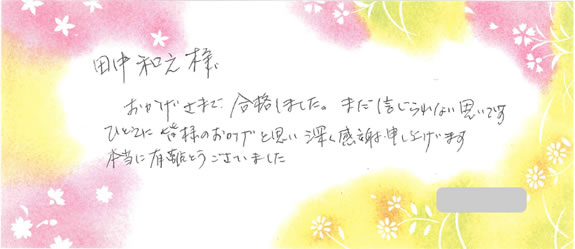 田中和之様
おかげさまで、合格しました。まだ信じられない思いです
ひとえに皆様のおかげと思い深く感謝申し上げます
本当に有難とうございました